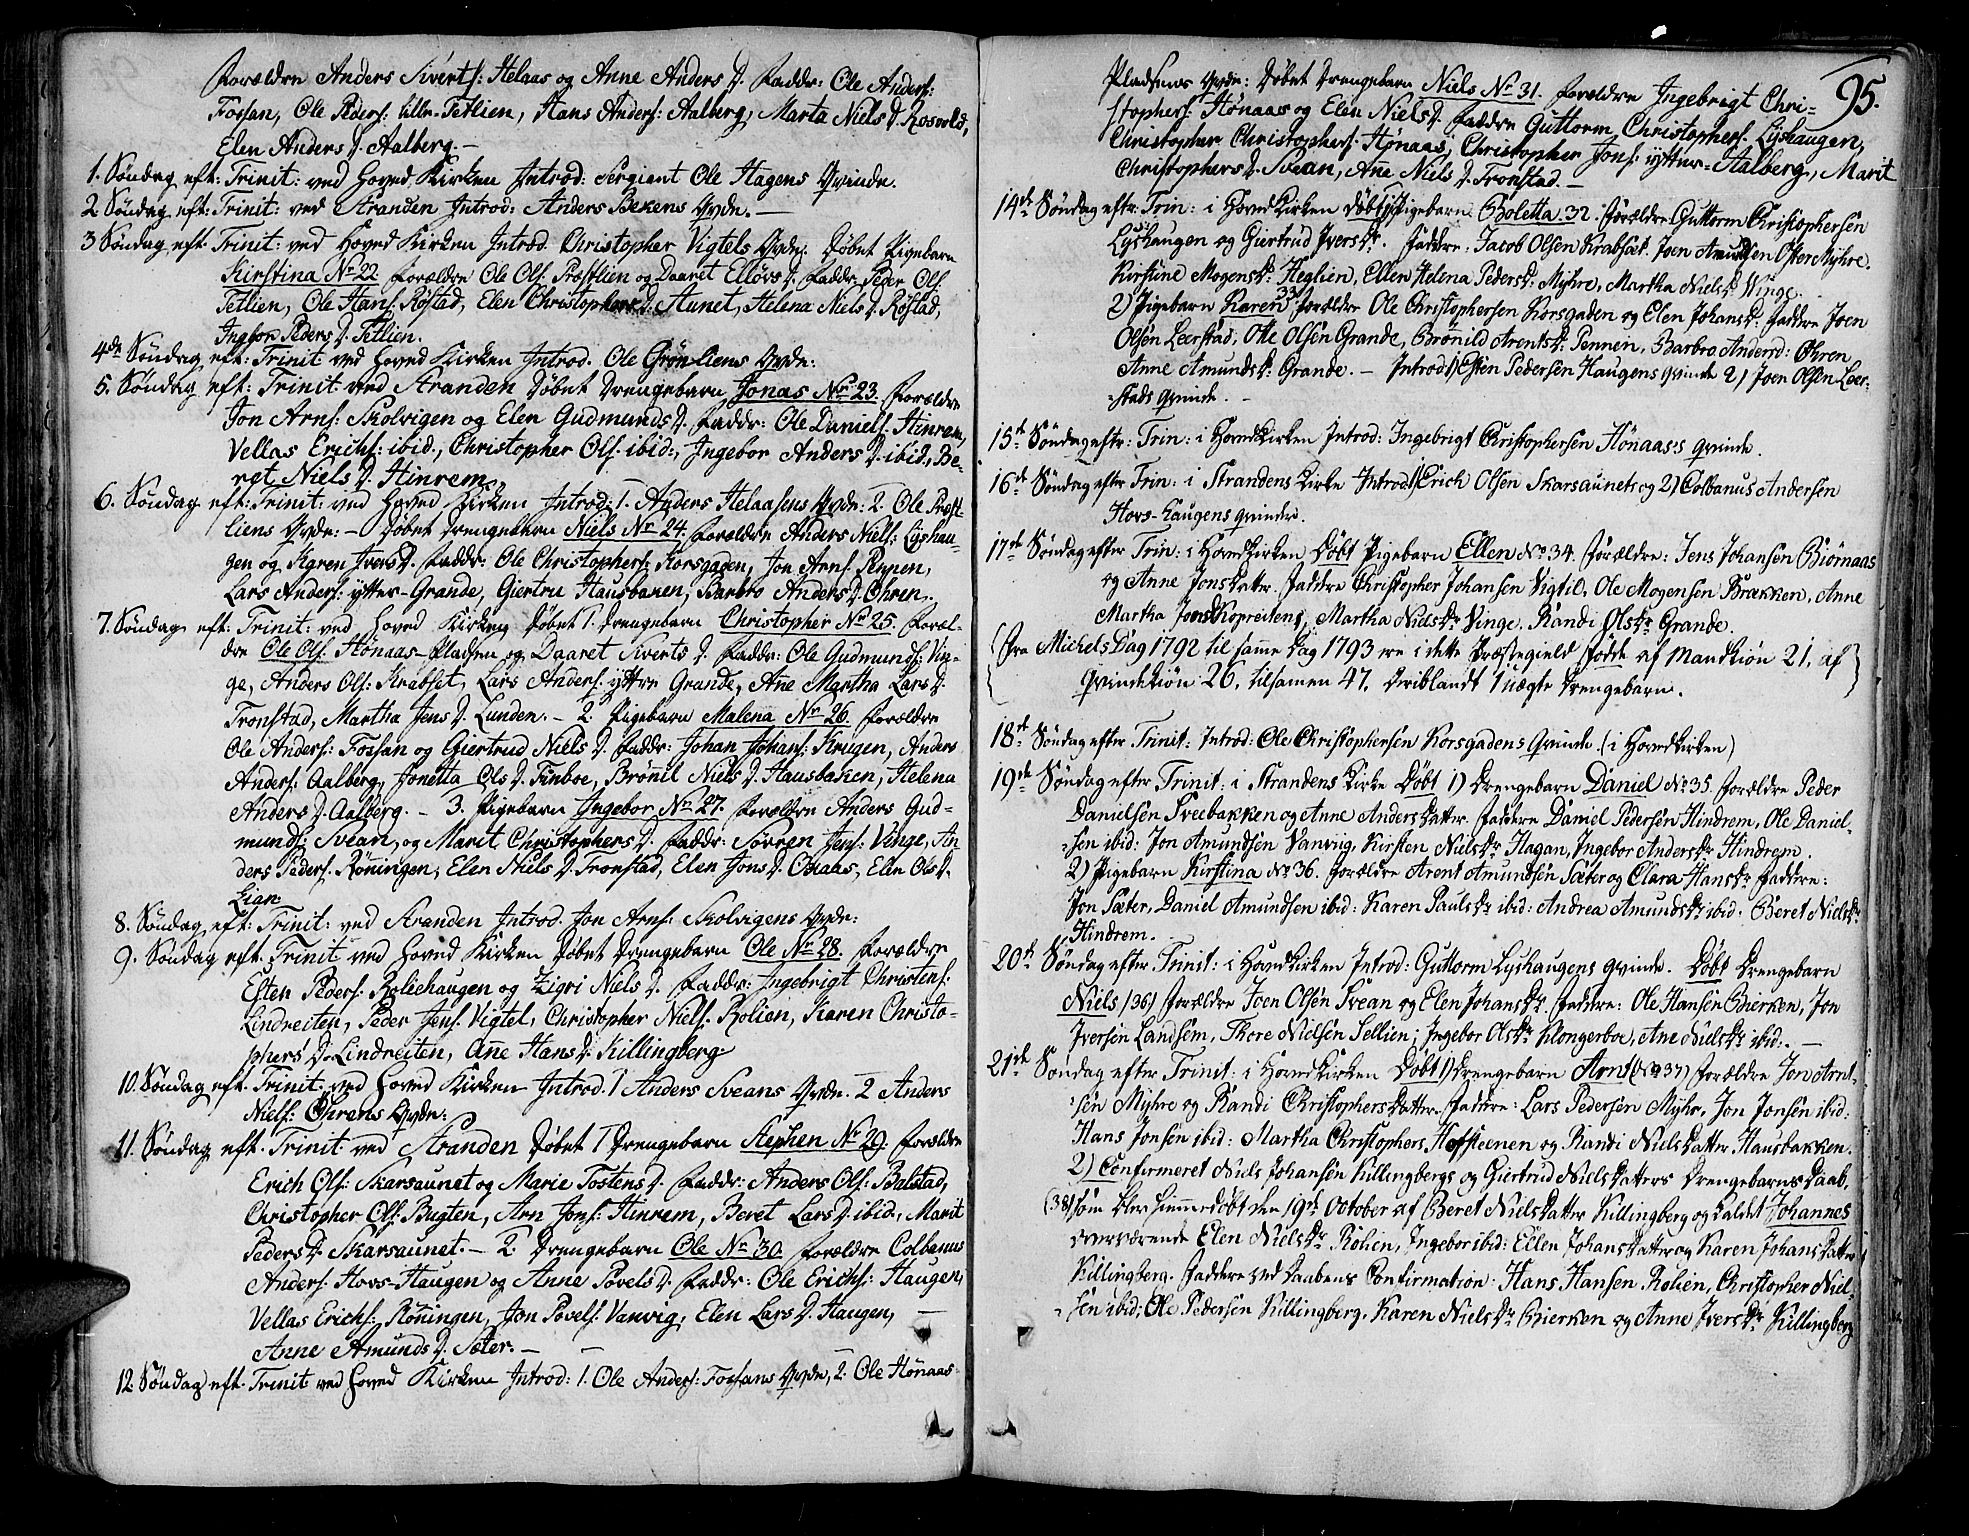 Forældre Anders Siverts: Helaas og Anne Anders D. Faddr: Ole Anders:
Fossan, Ole Peders: lille-Tetlien, Hans Anders: Aalberg, Marta Niels D. Rosvold,
Elen Anders D. Aalberg. —
1. Søndag eft: Trinit: ved Hoved Kirken Introd: Sergiant Ole Hagens Qvinde.
2 Søndag eft: Trinit: ved Stranden Introd: Anders Bekens Qvde. —
3 Søndag eft. Trinit: ved Hoved Kirken Introd. Christopher Vigtels Qvde. Døbet Pigebarn
Kirstina No 22. Forældre Ole Ols. Præstlien og Daaret Ellevs D. Faddr: Peder Ols.
Tetlien, Ole Hans. Røstad, Elen Christophers D. Aunet, Helena Niels D. Røstad,
Ingbor Peders D. Tetlien.
4de Søndag eft: Trinit ved Hoved Kirken Introd. Ole Grønliens Qvde:
5. Søndag eft: Trinit ved Stranden Døbet Drengebarn Jonas No 23. Forældre
Jon Arns: Skolvigen og Elen Gudmunds D. Faddr: Ole Daniels. Hinrem,
Vellas Erichs: ibid., Christopher Ols. ibid:, Ingebor Anders D. ibid., Be-
ret Niels D. Hinrem.
6. Søndag eft: Trinit: ved Hoved Kirken Introd: 1. Anders Helaasens Qvde: 2. Ole Præst-
liens Qvde: — Døbet Drengebarn Niels Nr 24. Forældre Anders Niels: Lyshau-
gen og Karen Ivers D. Faddr: Ole Christophers: Korsgaden, Jon Arns. Pennen,
Lars Anders: ytter-Grande, Giertru Hausbaken, Barbro Anders D. Øhren.
7. Søndag eft. Trinit: ved Hoved Kirken Døbet 1. Drengebarn Christopher No 25. Foræl-
dre Ole Ols. Hønaas-Pladsen og Daaret Siverts D. Faddr: Ole Gudmunds: Vin-
ge, Anders Ols: Krabset, Lars Anders. yttre Grande, Ane Martha Lars D.
Tronstad, Martha Jens D. Lunden. — 2. Pigebarn Malena No 26. Forældre
Ole Anders: Fossan og Giertrud Niels D. Faddr: Johan Johans: Krugen, Anders
Anders: Aalberg, Jonetta Ols D. Tinboe, Brønil Niels D. Hausbaken, Helena
Anders D. Aalberg. — 3. Pigebarn Ingebor No 27. Forældre Anders Gud-
munds: Svean, og Marit Christophers D. Faddr: Sørren Jens: Vinge, An
ders Peders. Røningen, Elen Niels D. Tronstad, Elen Jons D. Obiaas, Elen Ols D.
Lian.
8. Søndag eft: Trinit: ved Stranden Introd. Jon Arns: Skolvigens Qvde:
9. Søndag eft. Trinit ved Hoved Kirken Døbet Drengebarn Ole No 28. Forældre
Esten Peders: Roliehaugen og Zigri Niels D. Faddr: Ingebrigt Christens:
Lindreiten, Peder Jens. Vigtel, Christopher Niels: Rolien, Karen Christo-
phers D. Lindreiten, Anne Hans D. Killingberg.
10. Søndag eft. Trinit: ved Hoved Kirken Introd. 1 Anders Sveans Qvde. 2 Anders
Niels: Øhrens Qvde:
11. Søndag eft. Trinit: ved Stranden Døbet 1 Drengebarn Stephen No 29. Forældre
Erich Ols: Skarsaunet og Marie Tostens D. Faddr: Anders Ols: Balstad,
Christopher Ols: Bugten, Arn Jons: Hinrem, Beret Lars D. ibid., Marit
Peders D. Skarsaunet. — 2. Drengebarn Ole No 30. Forældre Colbanus
Anders: Hovs-Haugen og Anne Povels D. Faddr: Ole Erichs: Haugen,
Vellas Erichs: Røningen, Jon Povels. Vanvig, Elen Lars D. Haugen, —
Anne Amunds D. Sæter. — —
12 Søndag eft. Trinit: ved Hoved Kirken Introd: 1. Ole Anders: Fossans Qvde, 2. Ole Hønaas-
95.
Pladsens Qvde: Døbet Drengebarn Niels No 31. Forældre Ingebrigt Chri-
stophers. Hønaas og Elen Niels D. Faddre Guttorm Christophers. Lyshaugen,
Christopher Christophers. Hønaas, Christopher Jons: ytter-Aalberg, Marit
Christophers D. Svean, Ane Niels D. Tronstad. —
14de Søndag efter Trin: i Hoved Kirken døbt Pigebarn Boletta. 32. Forældre Guttorm Christophersen
Lyshaugen og Giertrud Ivers Dr. Faddre: Jacob Olsen Krabset. Joen Amundsen Øster Myhre.
Kirstine Mogens Dr. Heglien, Ellen Helena Peders Dr. Myhre, Martha Niels Dr Winge.
2) Pigebarn Karen 33 Forældre Ole Christophersen Korsgaden og Elen Johans Dr. Faddre Joen
Olsen Leerstad, Ole Olsen Grande, Brønild Arents Dr. Pennen, Barbro Andersd: Øhren
Anne Amunds Dr. Grande. — Introd 1) Esten Pedersen Haugens qvinde 2) Joen Olsen Leer-
stads qvinde. —
15de Søndag eftr: Trin: i Hovedkirken Introd: Ingebrigt Christophersen Hønaas's qvinde.
16de Søndag efter Trin: i Strandens Kirke Introd 1) Erich Olsen Skarsaunets og 2) Colbanus Andersen
Hovs-haugens qvinder.
17de Søndag efter Trin: i Hovedkirken Døbt Pigebarn Ellen No 34. Forældre: Jens Johansen Biørnaas
og Anne Jonsdatter. Faddre Christopher Johansen Vigtil, Ole Mogensen Brækken, Anne
Martha Jonsd Kopreitens, Martha Niels Dr Vinge. Randi Ols Dr Grande.
(Fra Michels Dag 1792 til samme Dag 1793 ere i dette Præstegield Fødte af Mandkiøn 21, af
Qvindekiøn 26, tilsamen 47. Deriblandt 1 uægte Drengebarn.
18de Søndag efter Trinit: Introd: Ole Christophersen Korsgadens Qvinde. (i Hovedkirken)
19de Søndag efter Trinit: i Strandens Kirke Døbt 1) Drengebarn Daniel No 35. Forældre Peder
Danielsen Sveebakken og Anne Anders datter. Faddere Daniel Pedersen Hindrem, Ole Daniel-
sen ibid: Jon Amundsen Vanvig, Kirsten Niels Dr Hagan, Ingebor Anders Dr Hindrem.
2) Pigebarn Kirstina No 36. Forældre Arent Amundsen Sæter og Clara Hans Dr Faddere:
Jon Sæter, Daniel Amundsen ibid: Karen Pauls Dr ibid: Andrea Amunds Dr ibid. Beret Niels Dr
Hindrem.
20de Søndag efter Trinit: i Hovedkirken Introd: Guttorm Lyshaugens qvinde. Døbt Drengebarn
Niels (36) Forældre Joen Olsen Svean og Elen Johans Dr. Faddere: Ole Hansen Bierken, Jon
Iversen Landsem, Thore Nielsen Sellien; Ingebor Ols Dr Klongerboe, Ane Niels Dr ibid: —
21de Søndag efter Trinit: i Hovedkirken Døbt 1) Drengebarn Arnt (No 37) Forældre Jon Arnt-
sen Myhre og Randi Christophersdatter. Faddere: Lars Pedersen Myhr, Jon Jonsen ibid:
Hans Jonsen ibid: Martha Christophers. Hofsteenen og Randi Nielsdatter Hausbakken.
2) Confirmeret Niels Johansen Killingbergs og Giertrud Nielsdatters Drengebarns Daab,
(38) som blev hiemmedøbt den 19de October af Beret Nielsdatter Killingberg og kaldet Johannes
overværende Elen Niels Dr. Rolien, Ingebor ibid: Ellen Johansdatter og Karen Johansdatter
Killingberg. Faddere ved Daabens Confirmation: Hans Hansen Rolien, Christopher Niel-
sen ibid: Ole Pedersen Killingberg, Karen Niels Dr Bierken og Anne Ivers Dr Killingberg